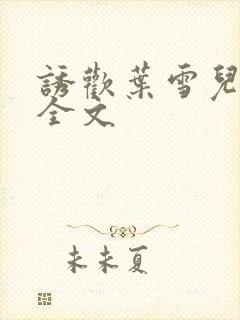 誘歡葉雪兒
全文
未未夏